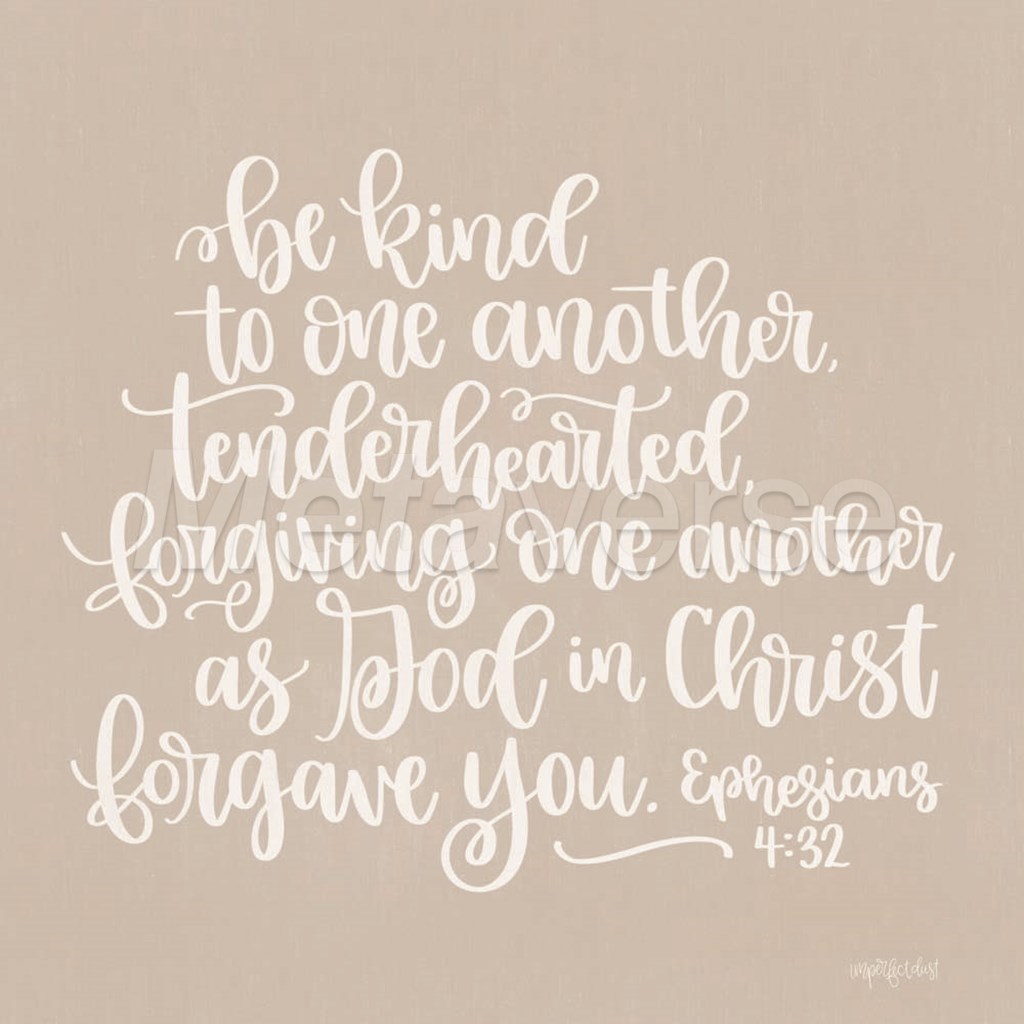 be kind
to one another,
tenderhearted,
Metaverse
forgiving one another
as God in Christ
forgave you. Ephesians
4:32
imperfectdust